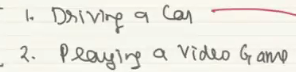 1. Driving a Car
2. Peaying a Video Game